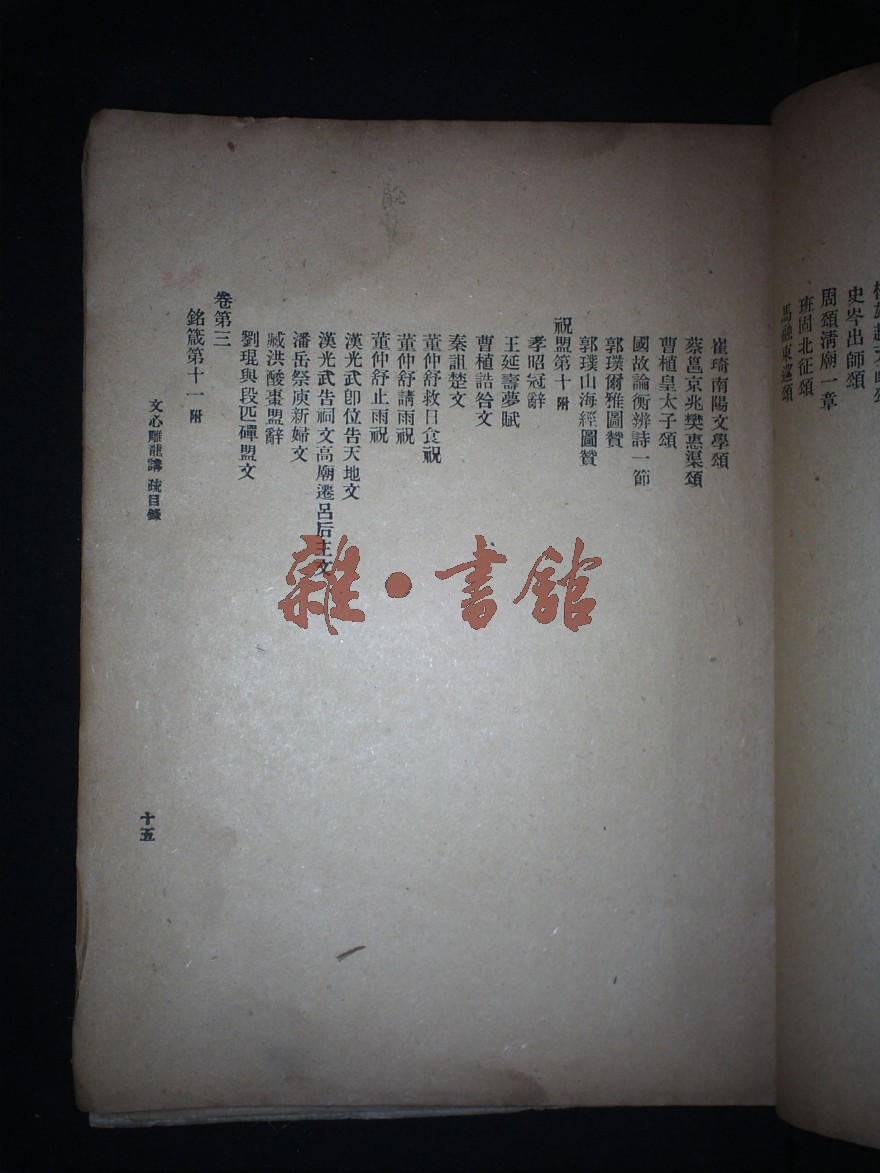 史岑出師頌
周頌清廟一章
班固北征頌
馬融東巡頌
崔琦南陽文學頌
蔡邕京兆樊惠渠頌
曹植皇太子頌
國故論衡辨詩一節
郭璞爾雅圖贊
郭璞山海經圖贊
祝盟第十附
孝昭冠辭
王延壽夢賦
曹植誥咎文
秦詛楚文
董仲舒救日食祝
董仲舒請雨祝
董仲舒止雨祝
漢光武卽位告天地文
漢光武告祠文高廟遷呂后主文
潘岳祭庾新婦文
臧洪酸棗盟辭
劉琨與段匹磾盟文
卷第三
銘箴第十一附
文心雕龍講疏目錄
十五
雜·書館